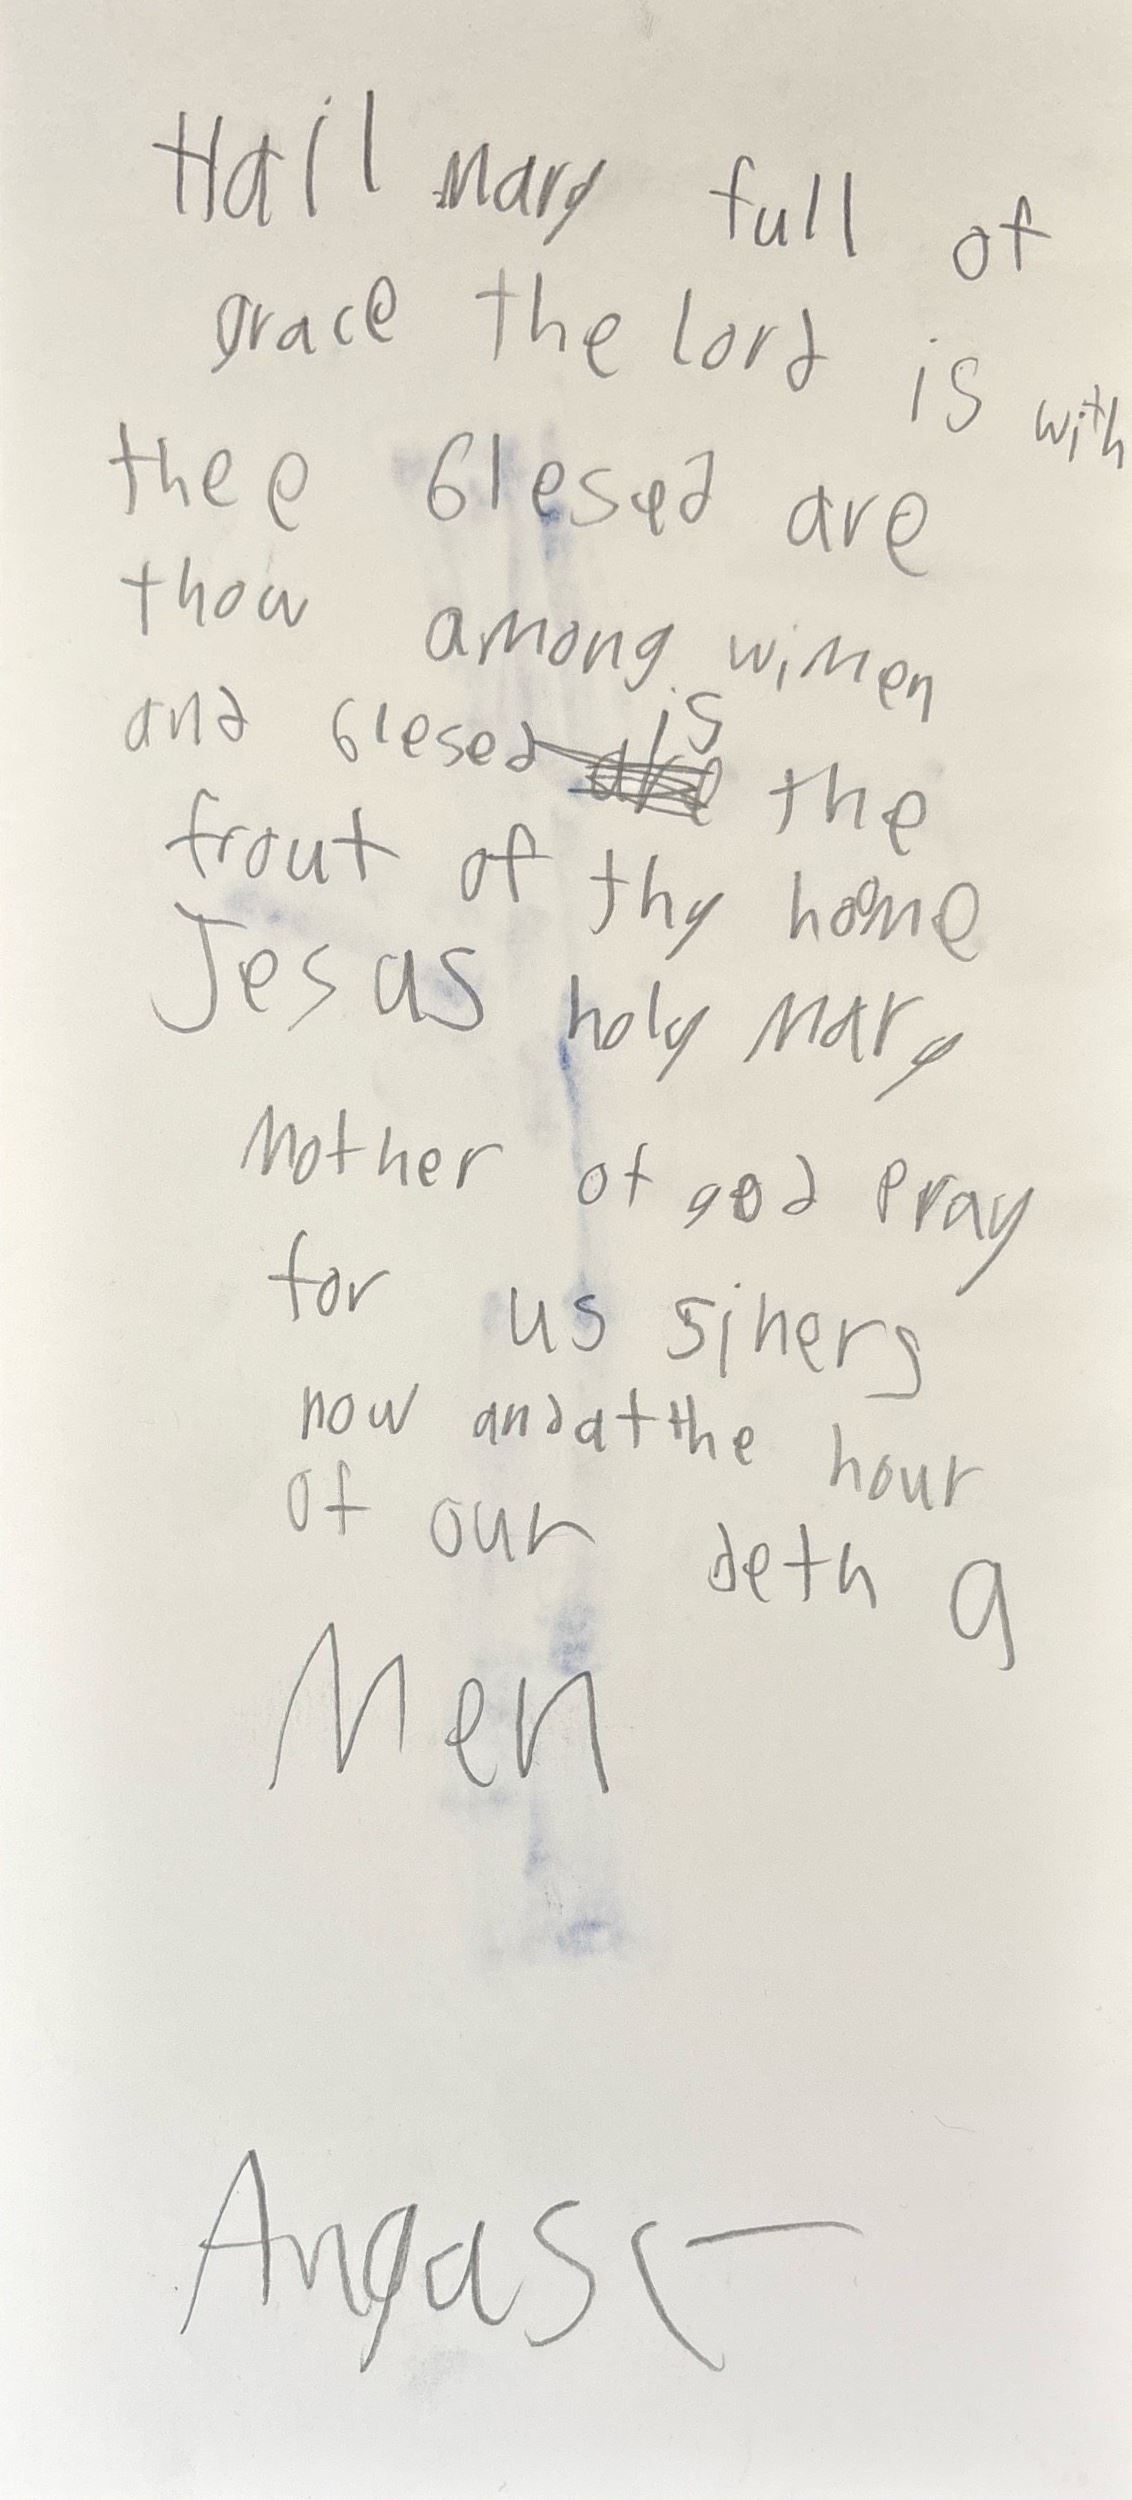 Hail Mary full of
grace the lord is with
thee blesed are
thou among wimen
and blesed is the
frout of thy home
Jesas holy Mary
Mother of god Pray
for us siners
now and at the hour
of our deth a
Men
Angas